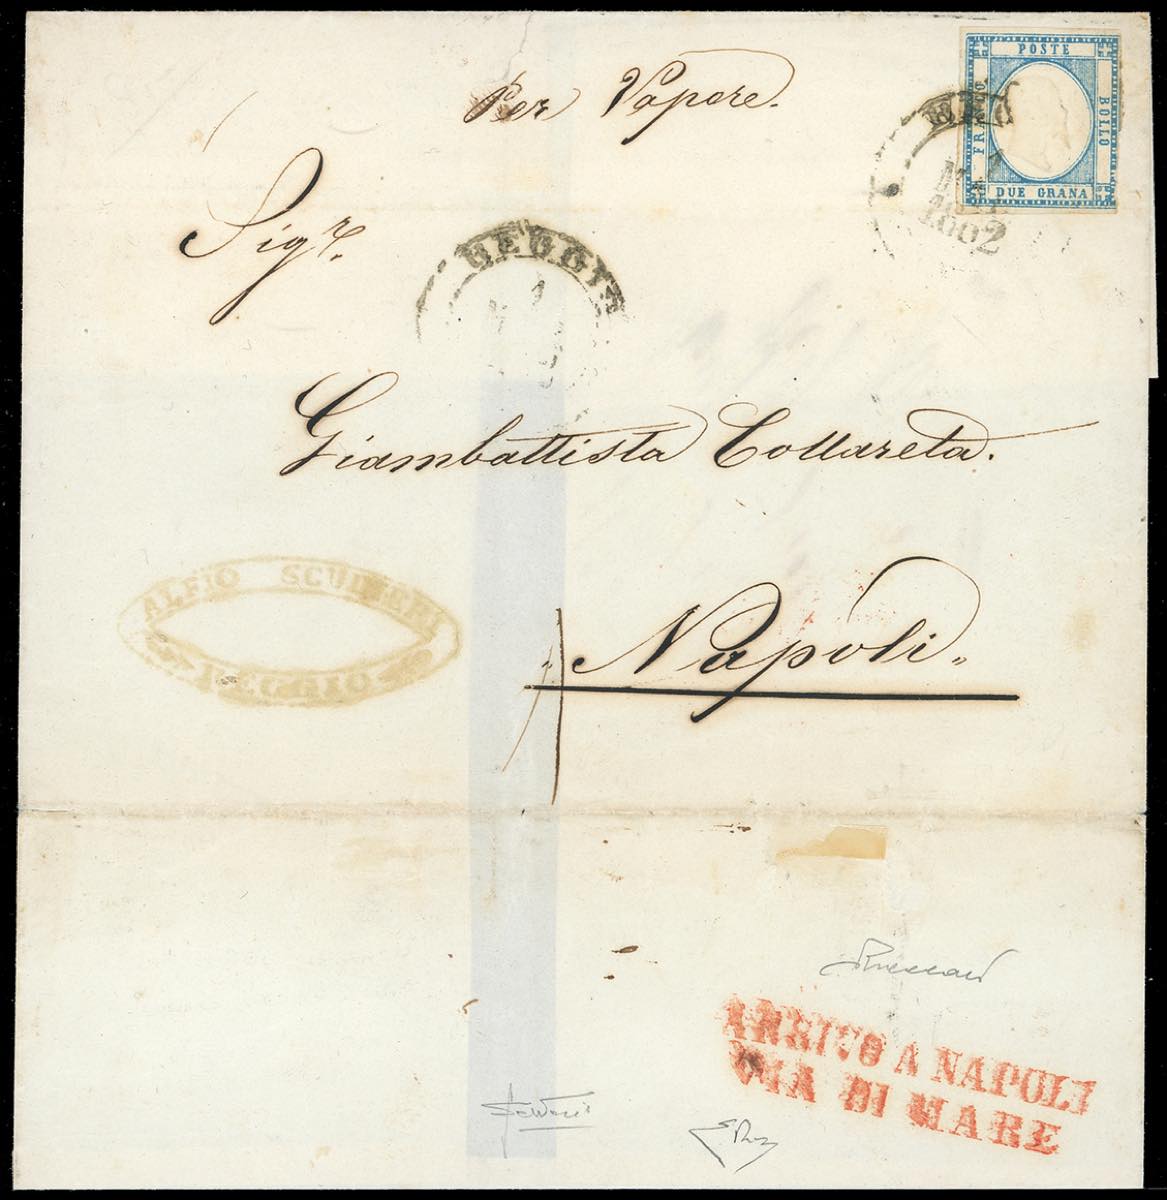 Per Vapore.
POSTE
FRANCO
BOLLO
DUE GRANA
1862
Sigr.
REGGIO
1
Giambattista Collareta.
ALFIO SCUDERI
REGGIO
Napoli.
ARRIVO A NAPOLI
VIA DI MARE